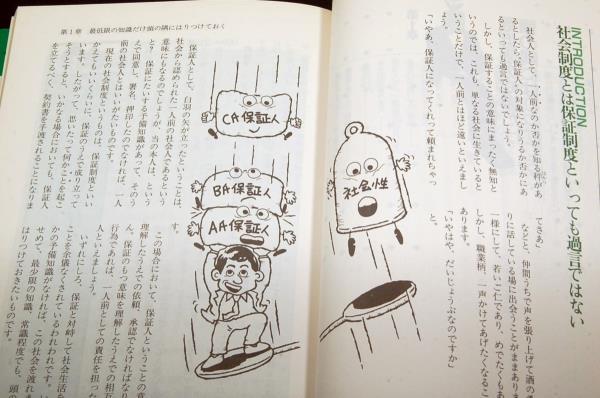 INTRODUCTION
社会制度とは保証制度といっても過言ではない
社会人として、一人前なのか否かを知る秤があ
るとしたら、保証人の対象になりうるか否かにあ
るといっても過言ではないでしょう。
しかし、保証することの意味にまったく無知と
いうのでは、これも、単なる社会に生きていると
いうことだけで、一人前とはほど遠いといえまし
「いやあ、保証人になってくれって頼まれちゃっ
てさあ」
などと、仲間うちで声を張り上げて酒の
りに話している場に出会うことがままあり
一様にして、若いご仁であり、めでたくもあ
しかし、職業柄、一声かけてあげたくなるこ
あります。
「いやはや、だいじょうぶなのですか」
と。
社会性
第1章 最低限の知識だけ頭の隅にはりつけておく
保証人として、白羽の矢が立ったということは、
社会から認められた一人前の社会人であるという
意味にもなるのでしょうが、当の本人は、という
と?保証にたいする予備知識があって、そのう
えで同意し、署名、押印したのでなければ、一人
前の社会人とはいいがたいものです。
現在の社会制度というものは、保証制度といい
かえてもいいくらいに、保証のうえで成り立って
います。したがって、思いたって何かことを起こ
そうとすると、いかなる場合においても、保証人
を立てるべく、契約書を手渡されることになりま
す。
CA保証人
BA保証人
AA保証人
この場合において、保証人ということの意
理解したうえでの依頼、承認でなければなり
ん。保証のもつ意味を理解したうえでの相互
行為であれば、一人前としての責任を担った
人といえましょう。
いずれにしろ、保証と対峙して社会生活を
ことを余儀なくされているわれわれです。い
かの予備知識がなければ、この社会を渡れま
せめて、最少限の知識、常識程度でも、頭の
はりつけておきたいものです。